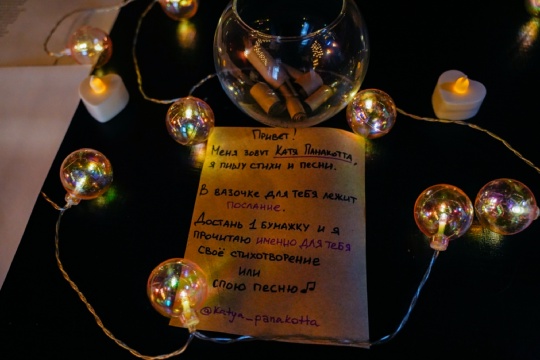 Привет!
Меня зовут Катя Панакотта,
я пишу стихи и песни.
В вазочке для тебя лежит
послание.
Достань 1 бумажку и я
прочитаю именно для тебя
своё стихотворение
или
спою песню♫
@katya_panakotta